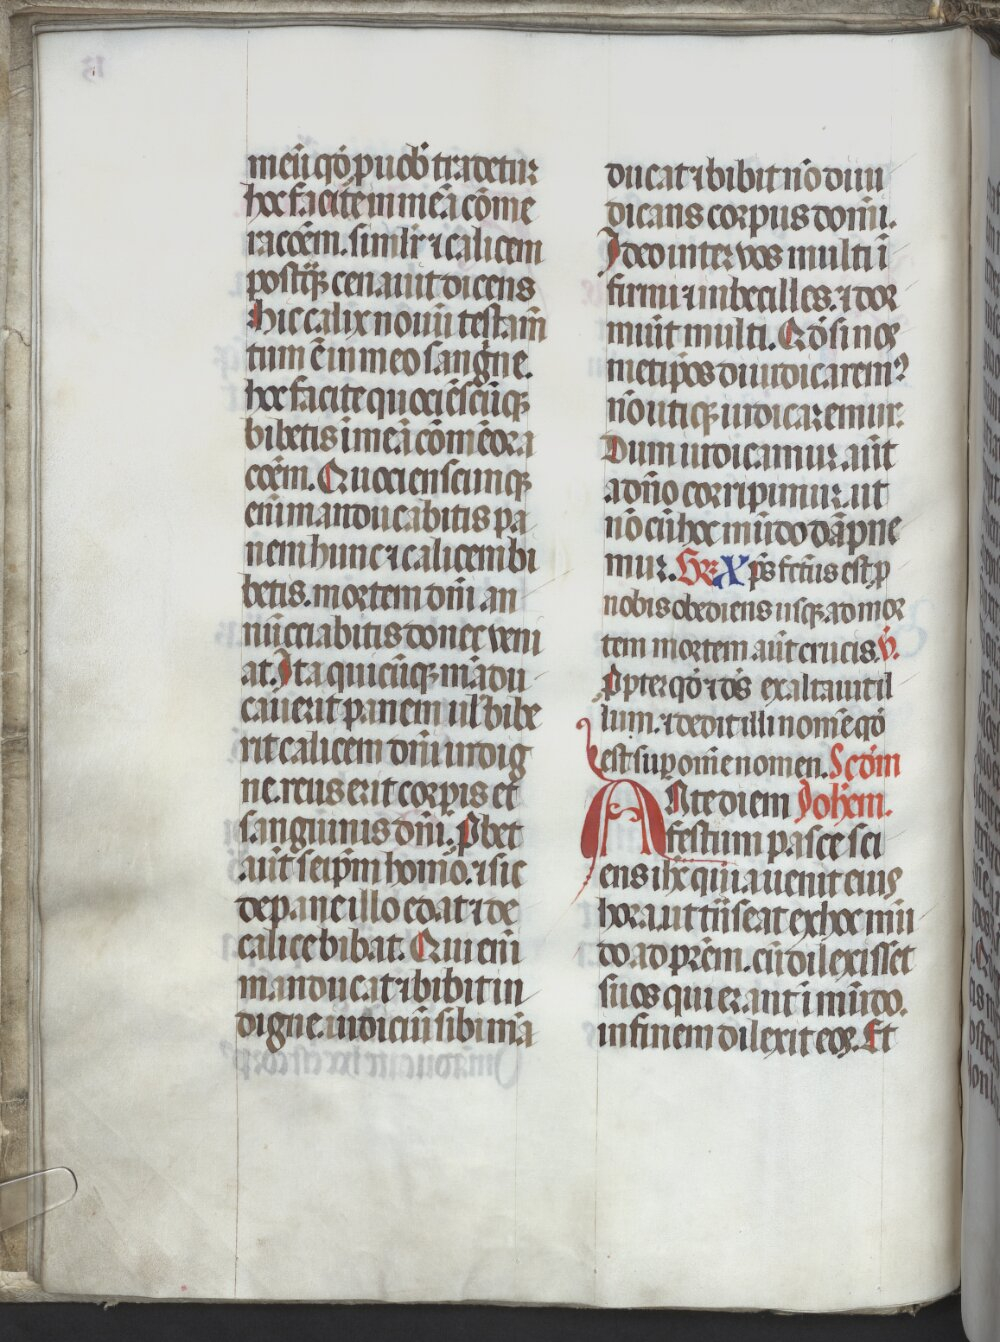 meū qđ p uob tradetur
hoc facite in meā cōme
racōem. simlr ⁊ calicem
postq̄ȝ cenauit dicens
Hic calix nouū testam̄
tum ē in meo sangne.
hoc facite quociēscūqȝ
bibetis ī meā cōmēora
cōem. Quocienscumqȝ
eni manducabitis pa
nem hunc ⁊ calicem bi
betis. mortem dnī an
nūcciabitis donec veni
at. Ita quicūqȝ mādu
cauerit panem ul bibe
rit calicem dnī indig
ne. reus erit corpis et
sanguinis dnī. Pbet
aūt seipm homo. ⁊ sic
de pane illo edat ⁊ de
calice bibat. Qui eni
manducat ⁊ bibit in
digne. iudiciū sibi mā
ducat ⁊ bibit nō diiu
dicans corpus domī.
Ideo inter vos multi ī
firmi ⁊ inbecilles. ⁊ dor
miūt multi. Qđ si nos
metipos diiudicarem⁹
nō utiqȝ iudicaremur.
Dum iudicamur aūt
a dnō corripimur. ut
nō cū hoc mūdo dāpne
mur. Gr Xps fctus est p
nobis obediens usqȝ ad mor
tem mortem aūt crucis. V.
Ppter qđ ⁊ ds exaltauit il
lum. ⁊ dedit illi nomē qđ
est sup om̄e nomen. Scdm
Ante diem Johem.
festum pasce sci
ens ihc quia uenit eius
hora ut trāseat ex hoc mū
do ad prēm. cū dilexisset
suos qui erant ī mūdo.
in finem dilexit eos. Et
13